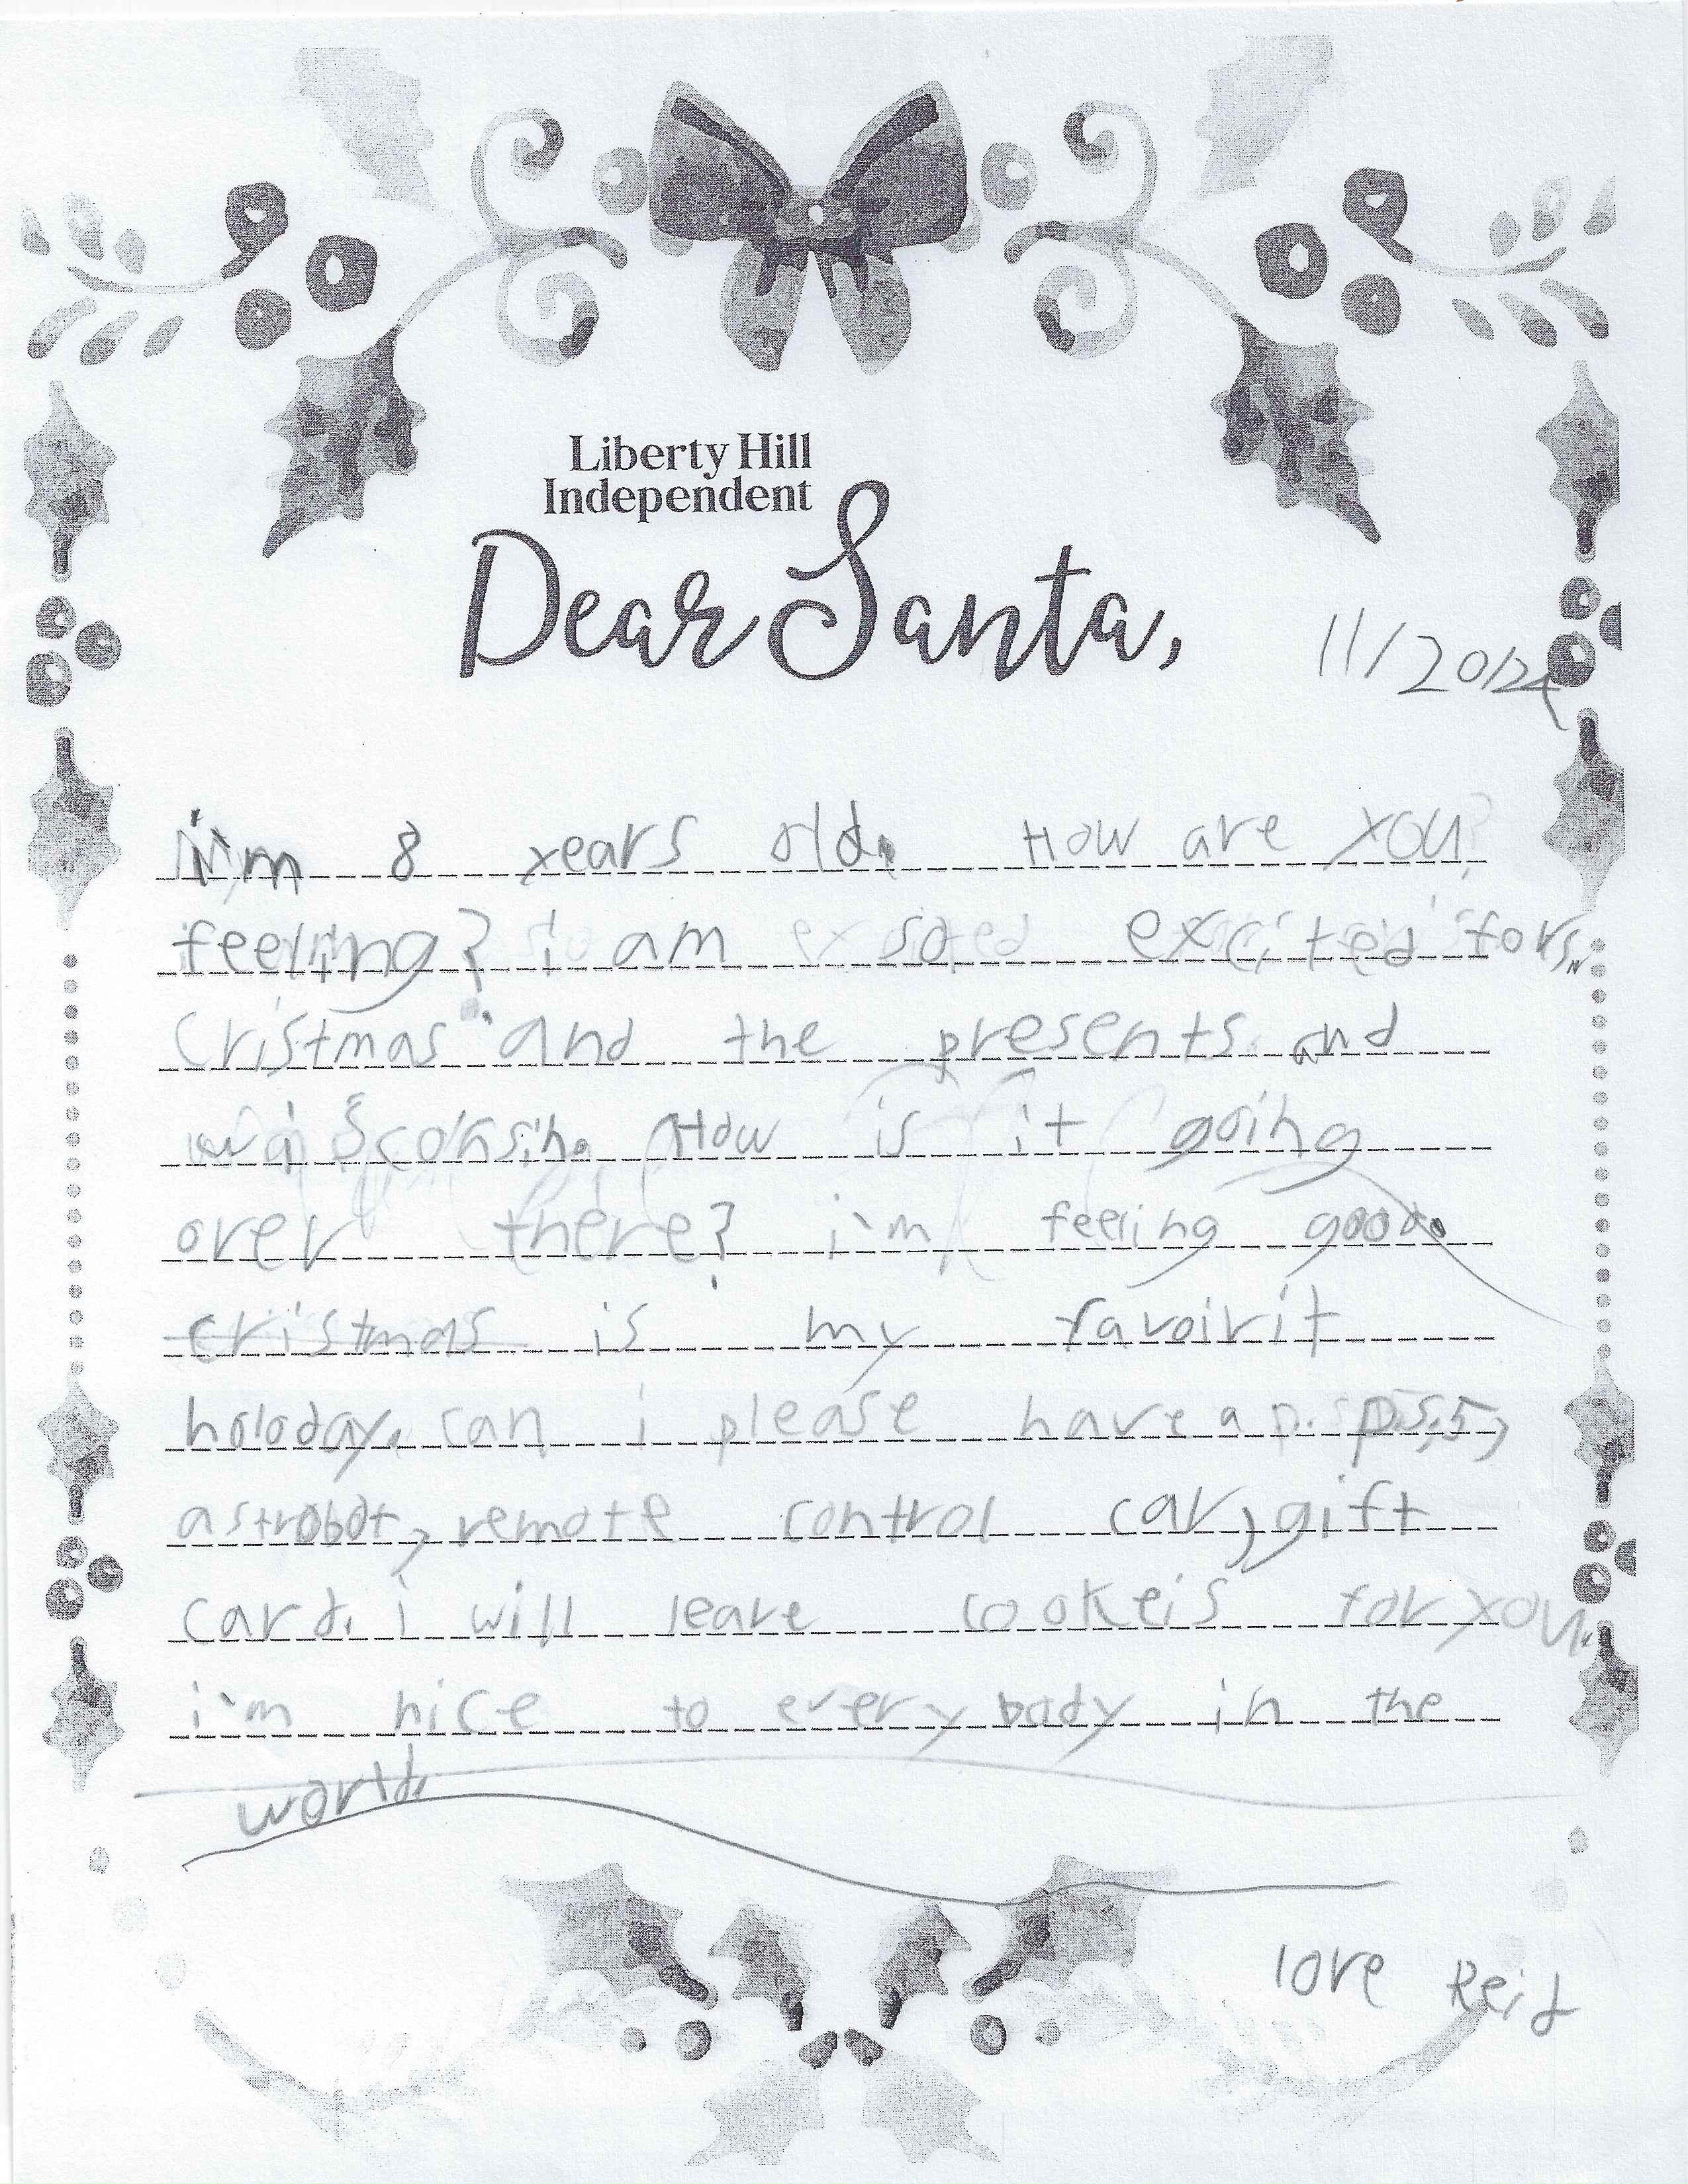 Liberty Hill
Independent
Dear Santa,
11/20/24
i'm 8 years old. How are you?
feeling? i am so excited for
Cristmas and the presents and
wisconsin. How is it going
over there? i'm feeling good.
cristmas is my favoirit
holoday. can i please have a p.s,5,
astrobot, remote control car, gift
card. i will leave cookeis for you.
i'm nice to everybody in the
world.
love Reid